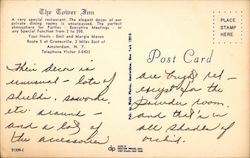 The Tower Inn
A very special restaurant. The elegant decor of our
private dining rooms is unsurpassed. The perfect
atmosphere for Parties - Executive Meetings - or
any Special Function from 2 to 200.
Your Hosts - Gail and Margie Mason
Route 5 at Cranesville, 3 Miles East of
Amsterdam, N. Y.
Telephone Victor 2-
PLACE
STAMP
HERE
Post Card
Their decor is
unusual - lots of
shields, swords,
etc around -
and a lot of
the accessories
are bright red -
except for the
powder room,
and that's in
all shades of
orchid.
dp